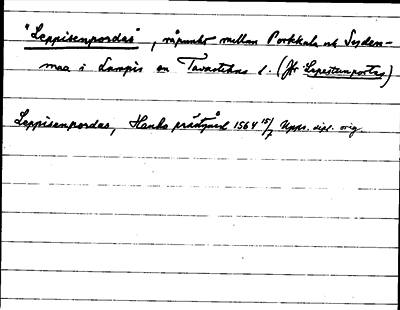 "Leppisenpordas", råpunkt mellan Porkkala och Sysden-
maa i Lampis en Tavastehus l. (Jfr Lepestenportas)
Leppisenpordas, Hauho prästgård 1564 15/7 Upps. dipl. orig.